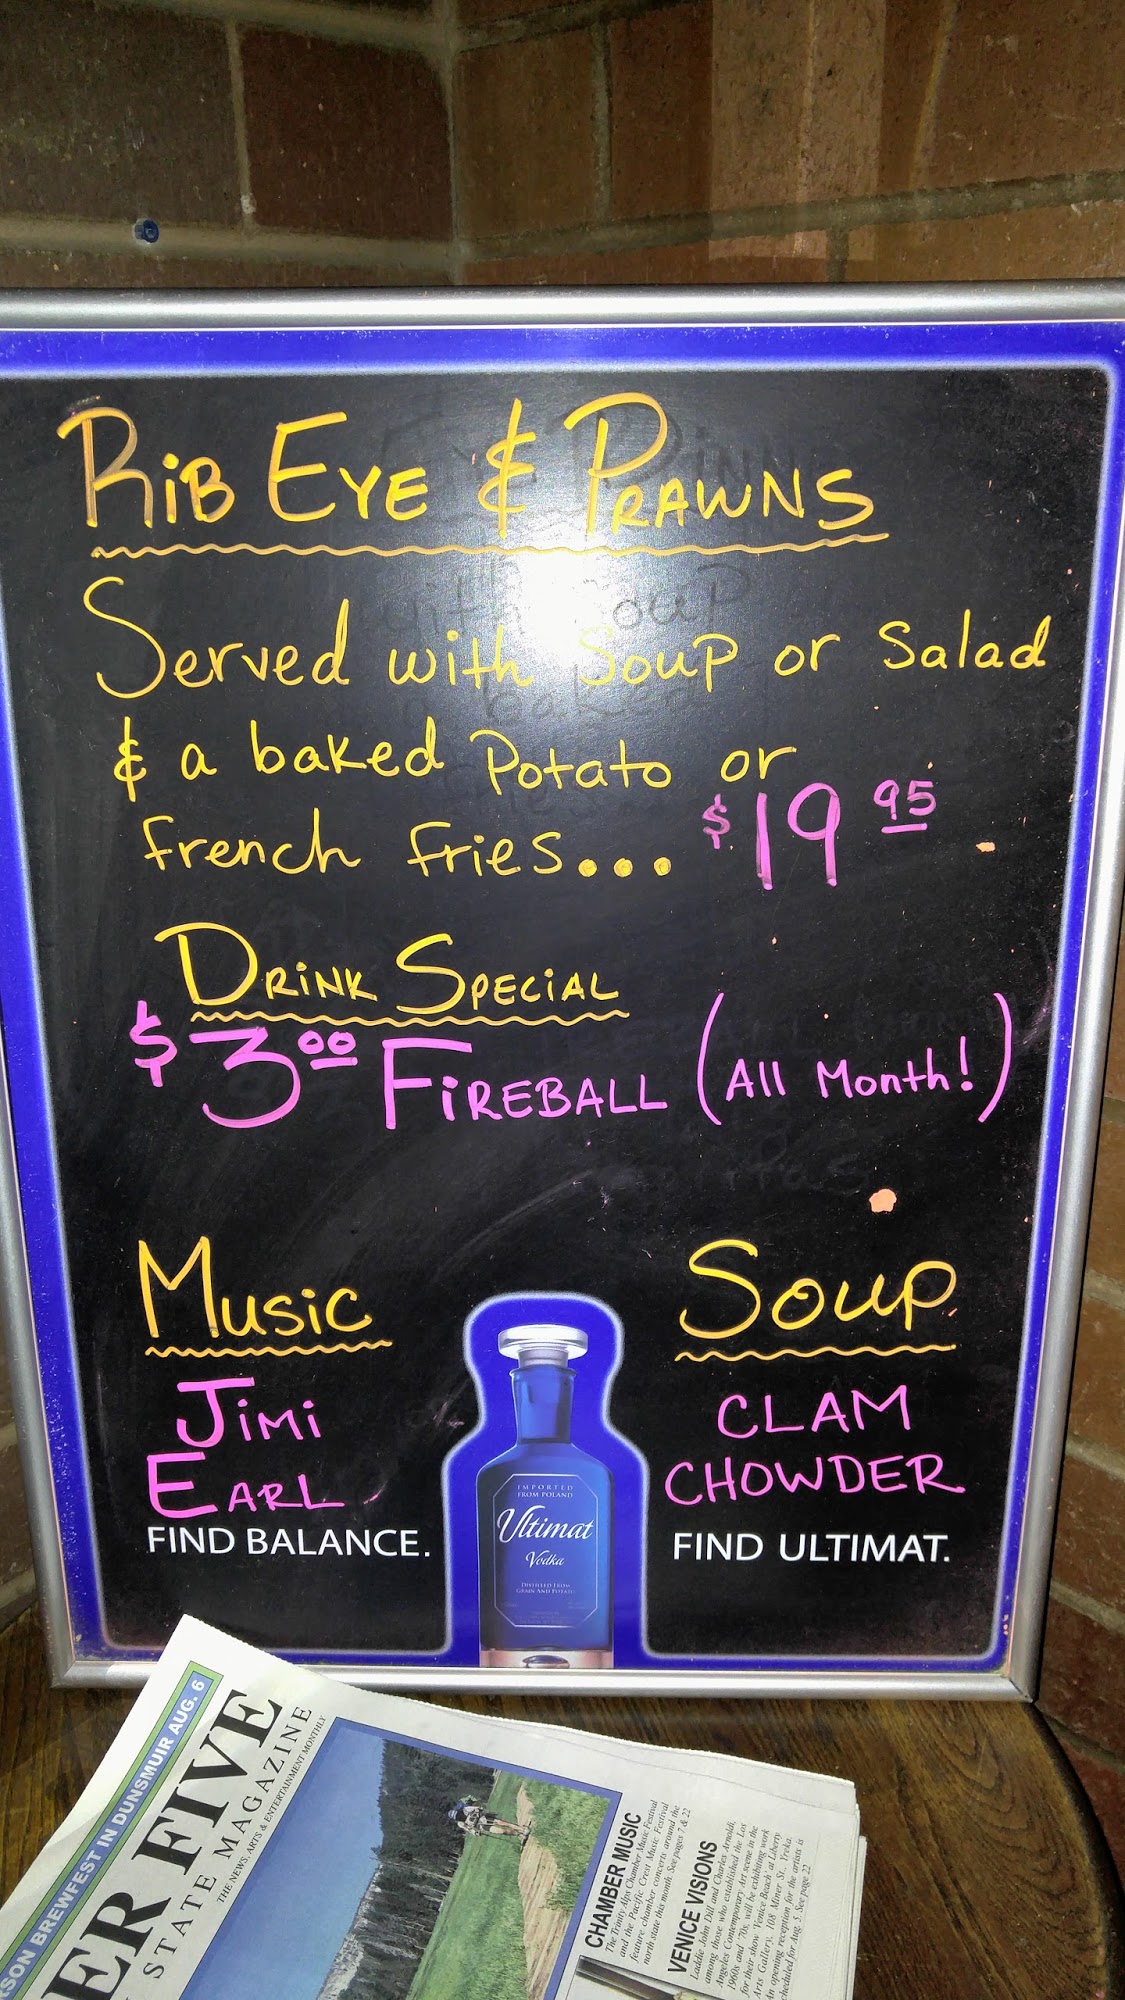 RiB EYE & PRAWNS
Served with Soup or Salad
& a baked Potato or
french fries... $19 95
DRiNK SPECiAL
$3 00 FiREBALL (All Month!)
MUSiC
JiMi
EARL
FIND BALANCE.
SOUP
CLAM
CHOWDER
FIND ULTIMAT.
IMPORTED
FROM POLAND
Ultimat
Vodka
DISTILLED FROM
GRAIN AND POTATO
BREWFEST IN DUNSMUIR AUG. 6
FIVE
STATE MAGAZINE
THE NEWS, ARTS & ENTERTAINMENT MONTHLY
CHAMBER MUSIC
The Trinity Alps Chamber Music Festival
and the Pacific Crest Music Festival
feature chamber concerts around the
north state this month. See pages 7 & 22
VENICE VISIONS
Laddie John Dill and Charles Arnoldi,
among those who established the Los
Angeles Contemporary Art scene in the
1960s and '70s, will be exhibiting work
for their show 'Venice Beach' at Liberty
Arts Gallery, 108 Miner St., Yreka.
An opening reception for the artists is
scheduled for Aug. 5. See page 22